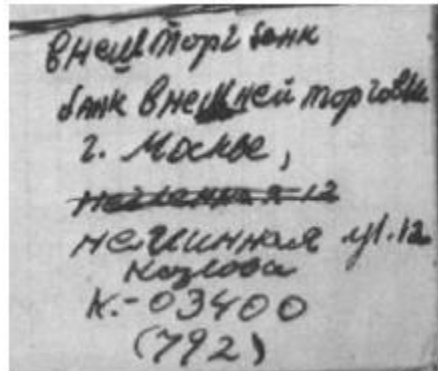 Внешторг банк
банк внешней торговли
г. Москве,
неглинная 12
неглинная ул. 12
Козлова
к.-03400
(792)